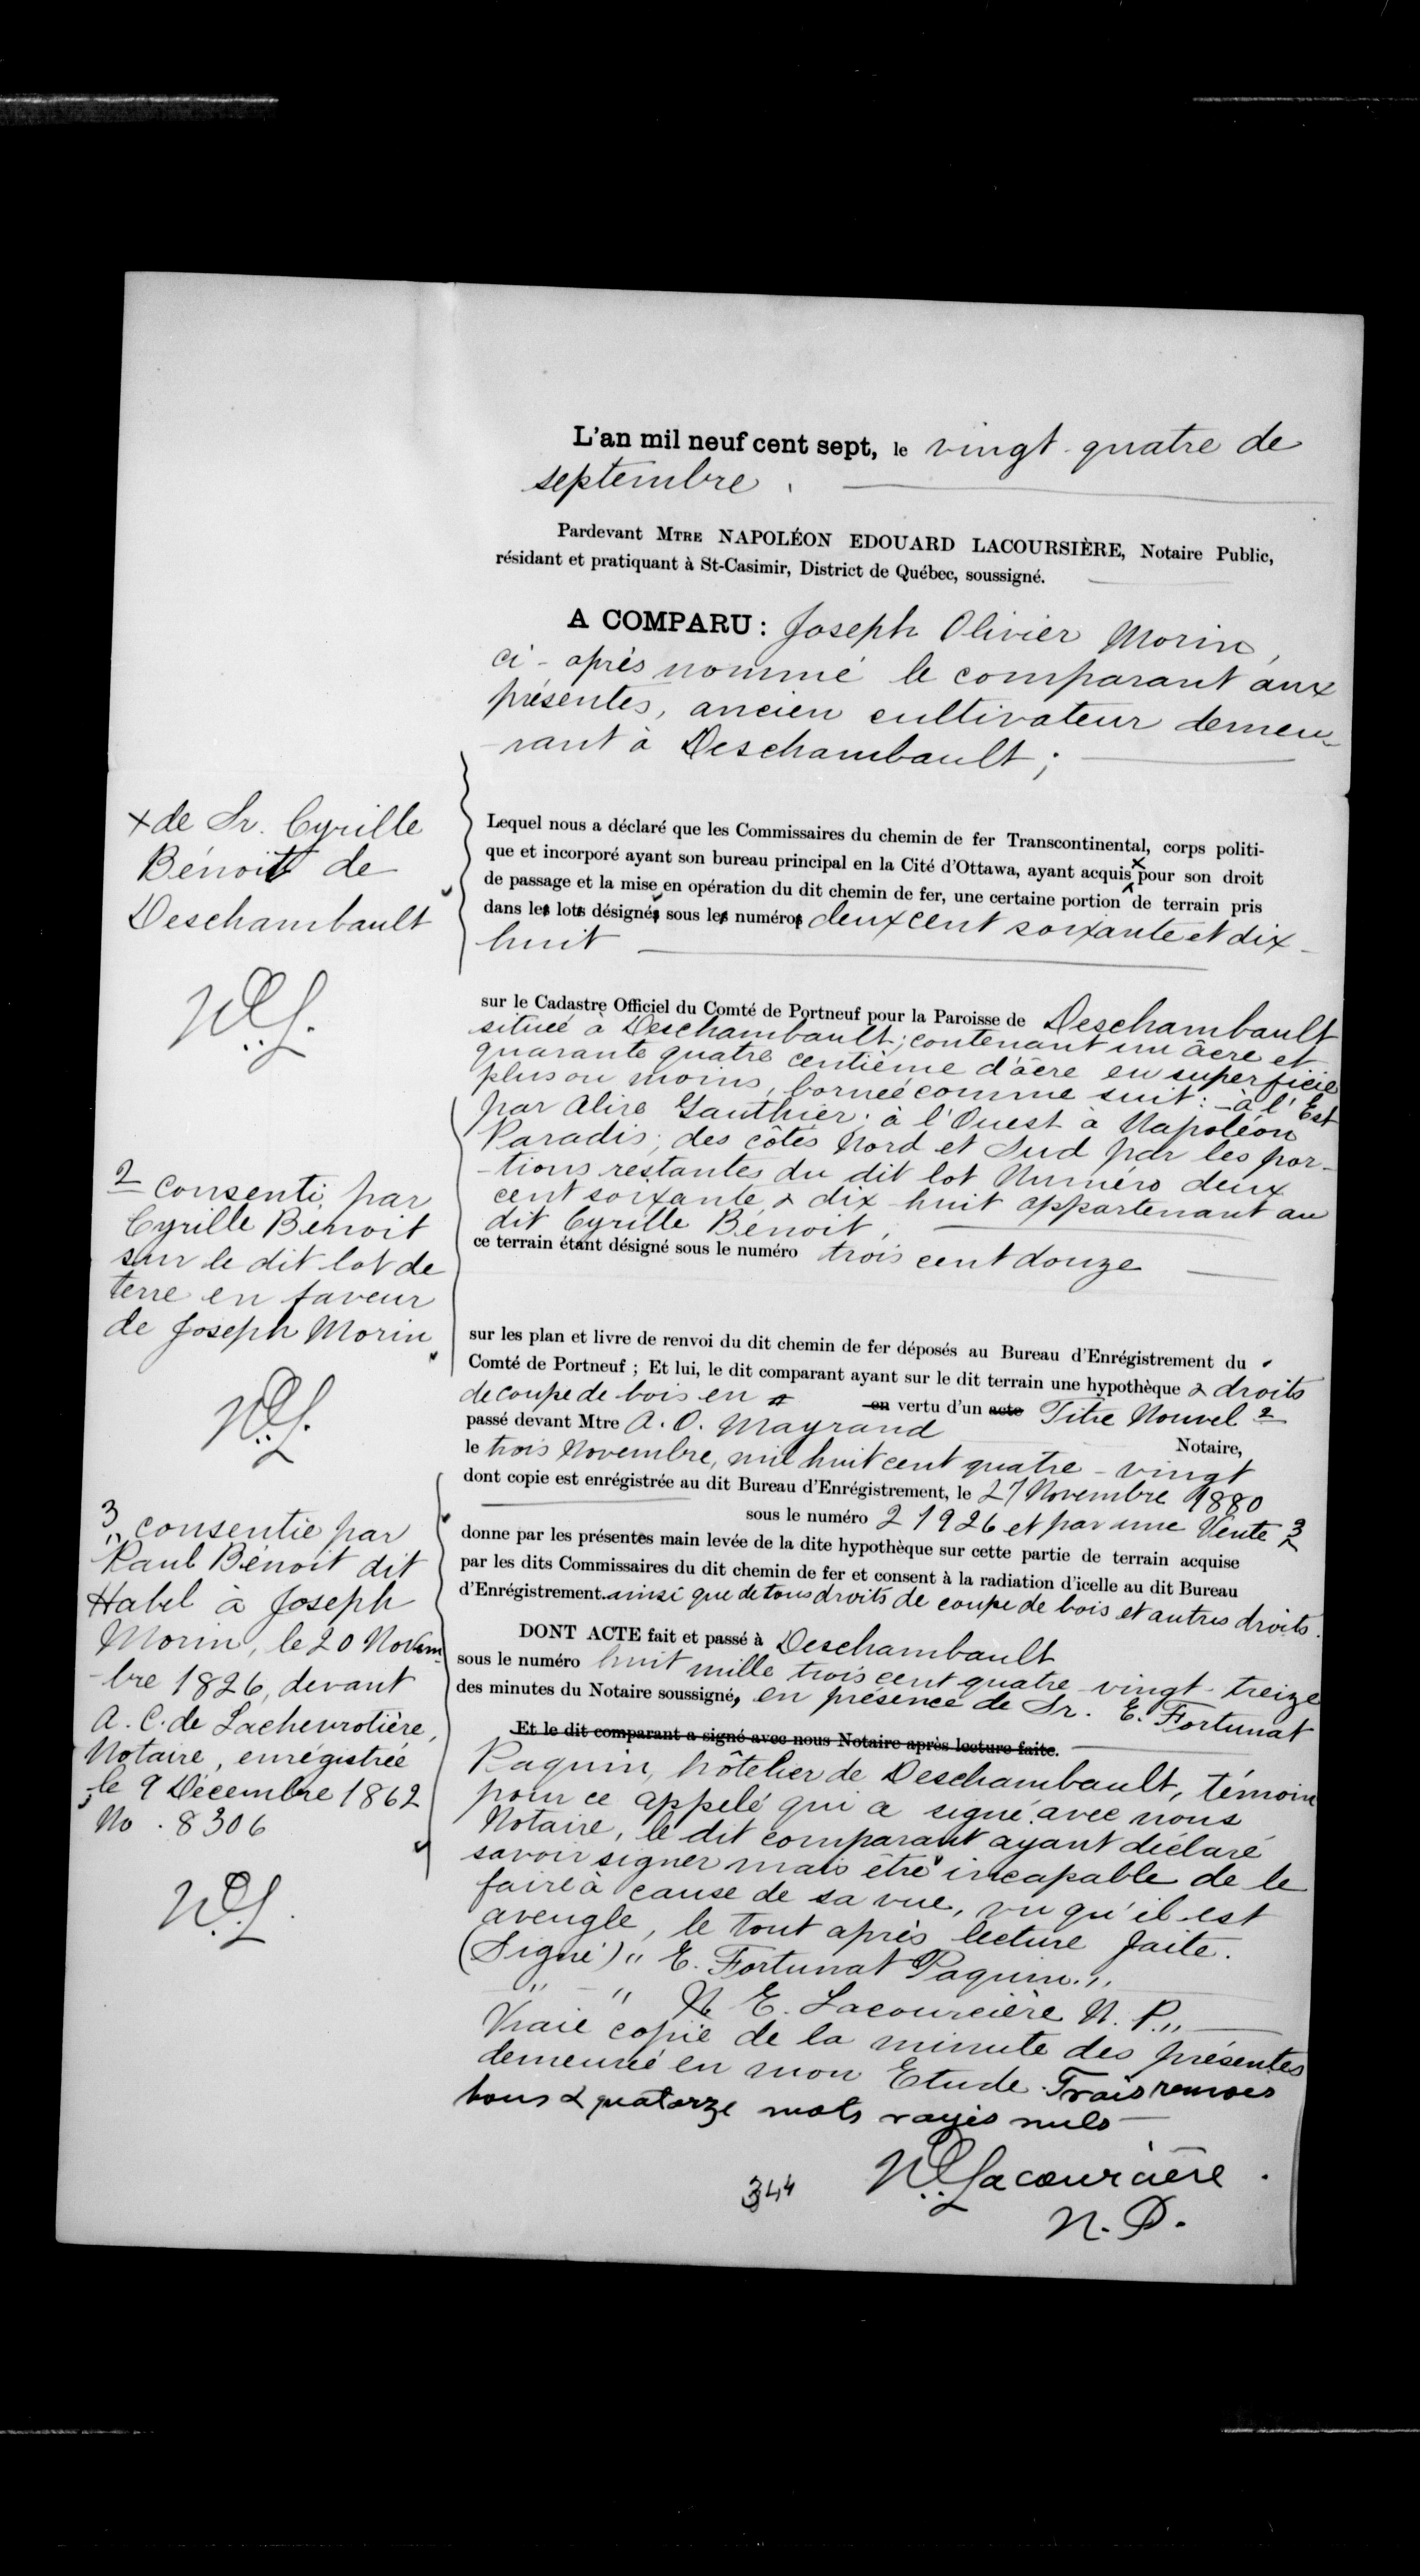 L'an mil neuf cent sept, le vingt-quatre de
septembre.
Pardevant MTRE NAPOLÉON EDOUARD LACOURSIÈRE, Notaire Public,
résidant et pratiquant à St-Casimir, District de Québec, soussigné.
A COMPARU: Joseph Olivier Morin,
ci-après nommé le comparant aux
présentes, ancien cultivateur demeu-
-rant à Deschambault;
Lequel nous a déclaré que les Commissaires du chemin de fer Transcontinental, corps politi-
que et incorporé ayant son bureau principal en la Cité d'Ottawa, ayant acquis x pour son droit
de passage et la mise en opération du dit chemin de fer, une certaine portion de terrain pris
dans les lots désignés sous les numéros deux cent soixante et dix-
huit
x de Sr. Cyrille
Bénoit de
Deschambault
N.E.L.
sur le Cadastre Officiel du Comté de Portneuf pour la Paroisse de Deschambault
située à Deschambault; contenant un âcre et
quarante quatre centième d'âcre en superficie
plus ou moins, bornée comme suit: - à l'Est
par Alire Gauthier; à l'Ouest à Napoléon
Paradis; des côtés Nord et Sud par les por-
-tions restantes du dit lot Numéro deux
cent soixante & dix-huit appartenant au
dit Cyrille Bénoit,
ce terrain étant désigné sous le numéro trois cent douze
2 consenti par
Cyrille Bénoit
sur le dit lot de
terre en faveur
de Joseph Morin
N.E.L.
sur les plan et livre de renvoi du dit chemin de fer déposés au Bureau d'Enrégistrement du
Comté de Portneuf ; Et lui, le dit comparant ayant sur le dit terrain une hypothèque & droits
de coupe de bois en en vertu d'un acte Titre Nouvel 2
passé devant Mtre A. O. Mayrand Notaire,
le trois Novembre, mil huit cent quatre-vingt
dont copie est enrégistrée au dit Bureau d'Enrégistrement, le 27 Novembre 1880
sous le numéro 21926 et par une Vente 3
donne par les présentes main levée de la dite hypothèque sur cette partie de terrain acquise
par les dits Commissaires du dit chemin de fer et consent à la radiation d'icelle au dit Bureau
d'Enrégistrement. ainsi que de tous droits de coupe de bois et autres droits.
3 consentie par
Paul Bénoit dit
Habel à Joseph
Morin, le 20 Novem
-bre 1826, devant
A. C. de Lachevrotière,
Notaire, enrégistrée
le 9 Décembre 1862
No. 8306
N.E.L.
DONT ACTE fait et passé à Deschambault
sous le numéro huit mille trois cent quatre-vingt-treize
des minutes du Notaire soussigné, en présence de Sr. E. Fortunat
Et le dit comparant a signé avec nous Notaire après lecture faite.
Paquin, hôtelier de Deschambault, témoin
pour ce appelé qui a signé avec nous
Notaire, le dit comparant ayant déclaré
savoir signer mais être incapable de le
faire à cause de sa vue, vu qu'il est
aveugle, le tout après lecture faite.
(Signé) " E. Fortunat Paquin "
" " N. E. Lacourcière N. P. "
Vraie copie de la minute des présentes
demeurée en mon Etude. Trois renvois
bons & quatorze mots rayés nuls
N. E. Lacourcière.
344 N. P.